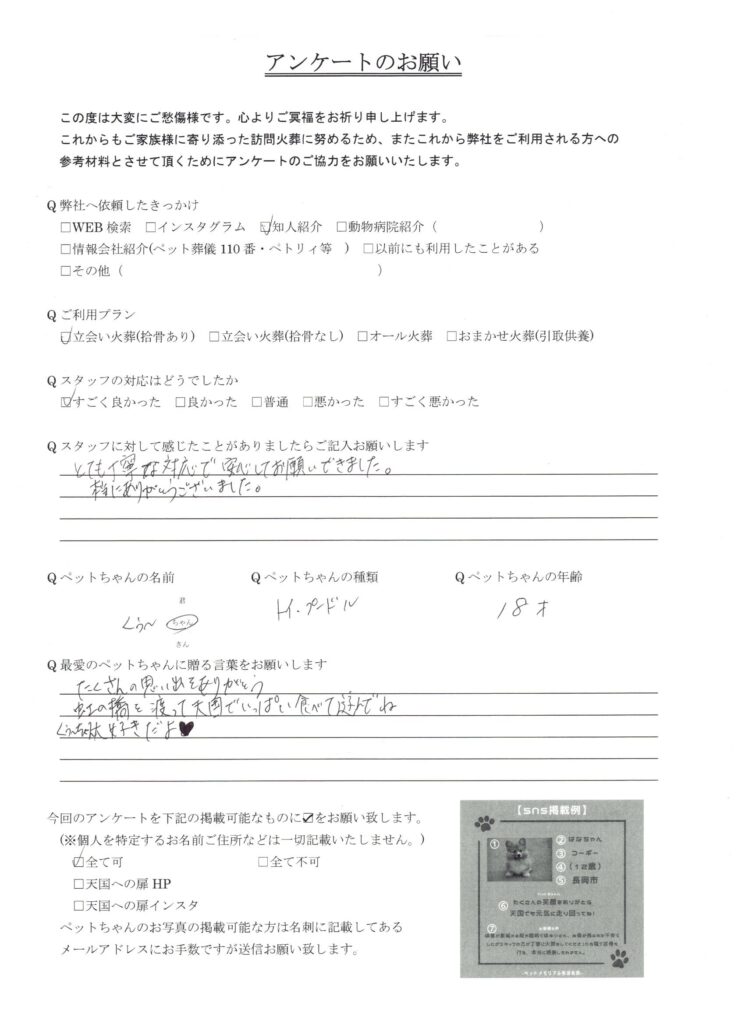 アンケートのお願い
この度は大変にご愁傷様です。心よりご冥福をお祈り申し上げます。
これからもご家族様に寄り添った訪問火葬に努めるため、またこれから弊社をご利用される方への
参考材料とさせて頂くためにアンケートのご協力をお願いいたします。
Q 弊社へ依頼したきっかけ
□WEB 検索 □インスタグラム ☑知人紹介 □動物病院紹介（ ）
□情報会社紹介(ペット葬儀 110 番・ペトリィ等 ) □以前にも利用したことがある
□その他（ ）
Q ご利用プラン
☑立会い火葬(拾骨あり) □立会い火葬(拾骨なし) □オール火葬 □おまかせ火葬(引取供養)
Q スタッフの対応はどうでしたか
☑すごく良かった □良かった □普通 □悪かった □すごく悪かった
Q スタッフに対して感じたことがありましたらご記入お願いします
とても丁寧な対応で安心してお願いできました。
本当にありがとうございました。
Q ペットちゃんの名前 Q ペットちゃんの種類 Q ペットちゃんの年齢
君
くぅ〜 ちゃん トイ・プードル 18才
さん
Q 最愛のペットちゃんに贈る言葉をお願いします
たくさんの思い出をありがとう
虹の橋を渡って天国でいっぱい食べて遊んでね
くぅちゃん大好きだよ♥
今回のアンケートを下記の掲載可能なものに☑をお願い致します。
(※個人を特定するお名前ご住所などは一切記載いたしません。)
☑全て可 □全て不可
□天国への扉 HP
□天国への扉インスタ
ペットちゃんのお写真の掲載可能な方は名刺に記載してある
メールアドレスにお手数ですが送信お願い致します。
【sns掲載例】
①
② はなちゃん
③ コーギー
④ (12歳)
⑤ 長岡市
⑥ たくさんの笑顔をありがとう
天国でも元気に走り回ってね！
⑦